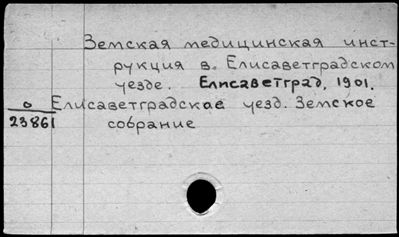 Земская медицинская инст-
рукция в. Елисаветградском
уезде. Елисаветград, 1901.
о Елисаветградское уезд. Земское
23861 собрание